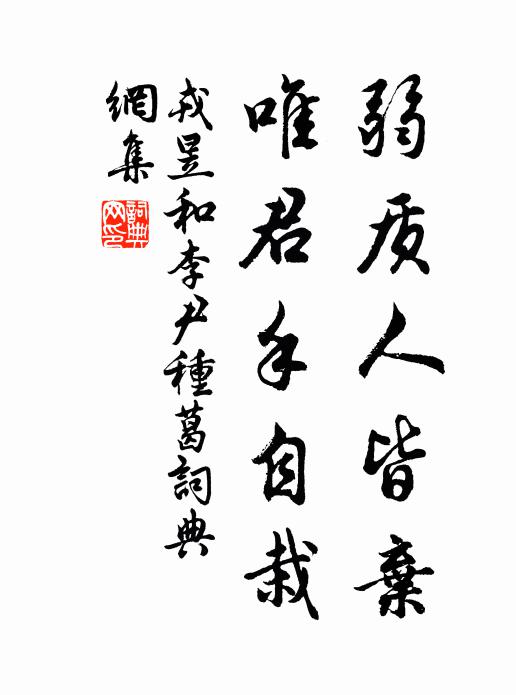 弱质人皆棄
唯君手自栽
戎昱和李尹種葛詞典
網集
詞典
网印